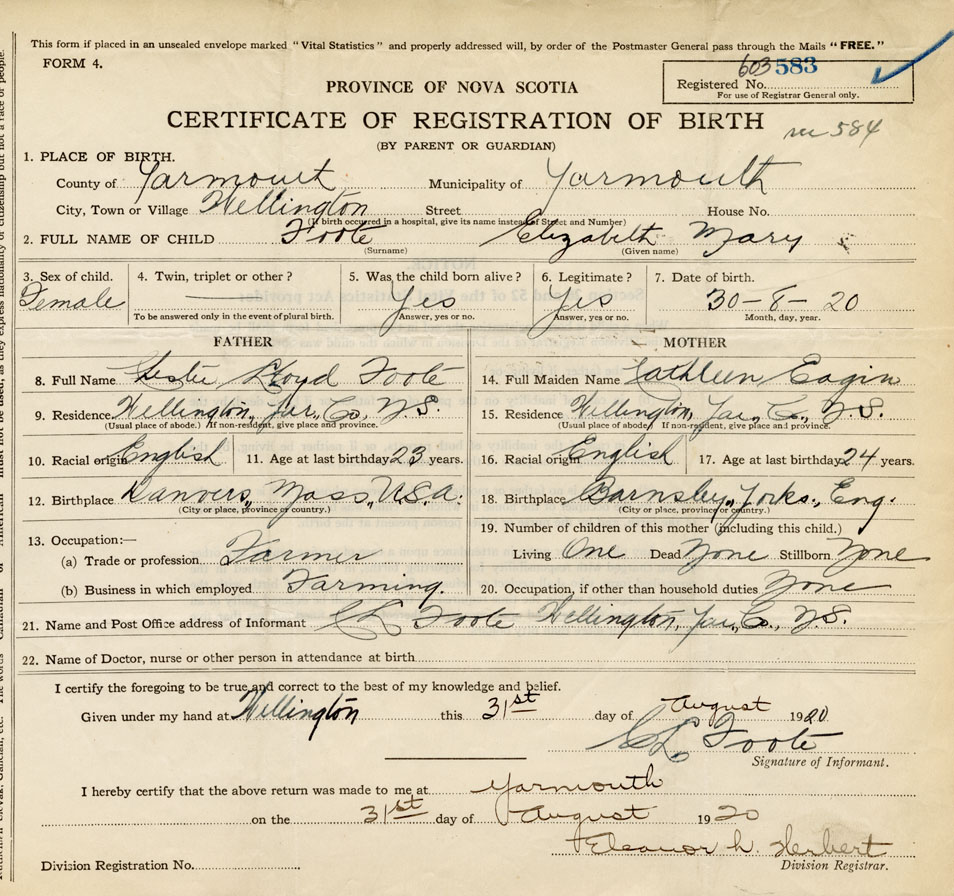 This form if placed in an unsealed envelope marked "Vital Statistics" and properly addressed will, by order of the Postmaster General pass through the Mails "FREE."
FORM 4.
603 583
Registered No.
For use of Registrar General only.
PROVINCE OF NOVA SCOTIA
CERTIFICATE OF REGISTRATION OF BIRTH
584
(BY PARENT OR GUARDIAN)
1. PLACE OF BIRTH.
County of Yarmouth Municipality of Yarmouth
City, Town or Village Wellington Street House No.
(If birth occurred in a hospital, give its name instead of Street and Number)
2. FULL NAME OF CHILD Foote Elizabeth Mary
(Surname) (Given name)
3. Sex of child. 4. Twin, triplet or other? 5. Was the child born alive? 6. Legitimate? 7. Date of birth.
Female — Yes Yes 30-8-20
To be answered only in the event of plural birth. Answer, yes or no. Answer, yes or no. Month, day, year.
FATHER MOTHER
8. Full Name Leslie Lloyd Foote 14. Full Maiden Name Kathleen Eagin
9. Residence Wellington, Yar., Co., N.S. 15. Residence Wellington, Yar., Co., N.S.
(Usual place of abode.) If non-resident, give place and province. (Usual place of abode.) If non-resident, give place and province.
10. Racial origin English 11. Age at last birthday 23 years. 16. Racial origin English 17. Age at last birthday 24 years.
12. Birthplace Danvers, Mass., U.S.A. 18. Birthplace Barnsley, Yorks., Eng.
(City or place, province or country.) (City or place, province or country.)
19. Number of children of this mother (including this child.)
13. Occupation:—
(a) Trade or profession Farmer Living One Dead None Stillborn None
(b) Business in which employed Farming. 20. Occupation, if other than household duties None
21. Name and Post Office address of Informant Foote Wellington, Yar., Co., N.S.
22. Name of Doctor, nurse or other person in attendance at birth
I certify the foregoing to be true and correct to the best of my knowledge and belief.
Given under my hand at Wellington this 31st day of August 1920
Foote
Signature of Informant.
I hereby certify that the above return was made to me at Yarmouth
on the 31st day of August 1920
Eleanor h. Herbert
Division Registration No. Division Registrar.